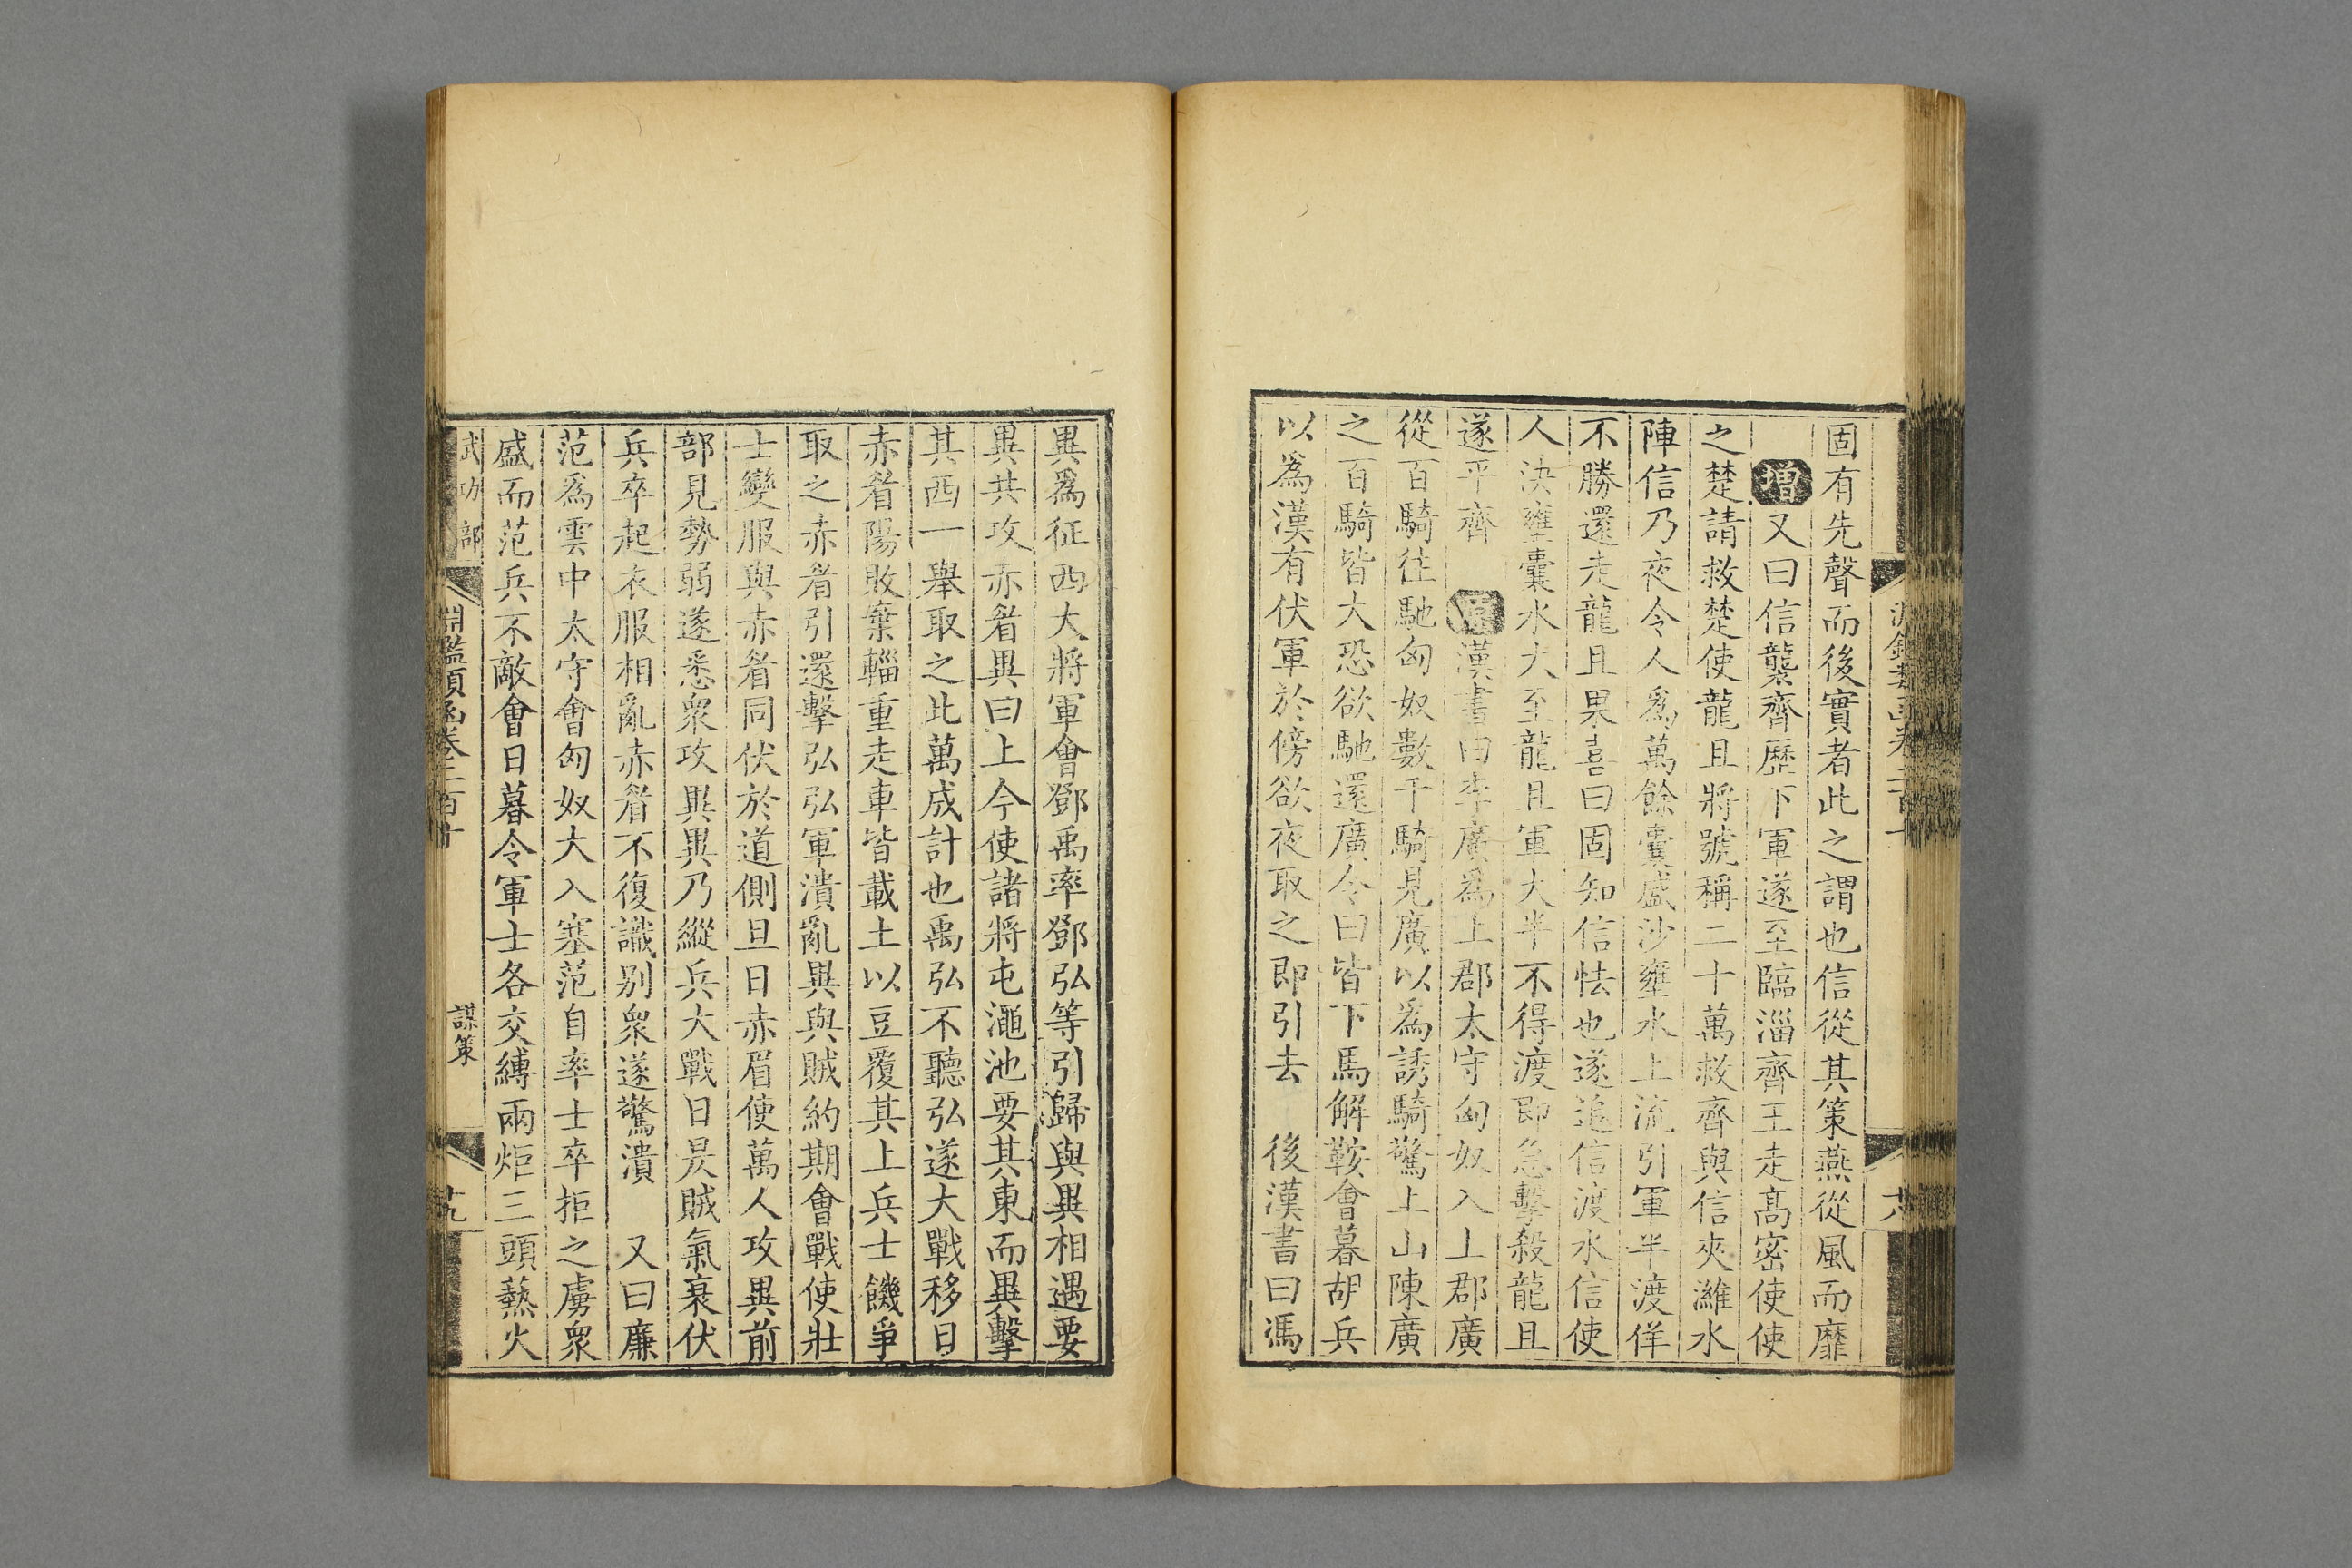 固有先聲而後實者此之謂也信從其策燕從風而靡
增又曰信襲齊歷下軍遂至臨淄齊王走髙密使使
之楚請救楚使龍且將號稱二十萬救齊與信夾濰水
陣信乃夜令人爲萬餘囊盛沙壅水上流引軍半渡佯
不勝還走龍且果喜曰固知信怯也遂追信渡水信使
人決壅囊水大至龍且軍大半不得渡即急擊殺龍且
遂平齊 原漢書曰李廣爲上郡太守匈奴入上郡廣
從百騎往馳匈奴數千騎見廣以爲誘騎驚上山陳廣
之百騎皆大恐欲馳還廣令曰皆下馬解鞍會暮胡兵
以爲漢有伏軍於傍欲夜取之即引去 後漢書曰馮
異爲征西大將軍會鄧禹率鄧弘等引歸與異相遇要
異共攻赤眉異曰上今使諸將屯澠池要其東而異擊
其西一舉取之此萬成計也禹弘不聽弘遂大戰移日
赤眉陽敗棄輜重走車皆載土以豆覆其上兵士饑爭
取之赤眉引還擊弘弘軍潰亂異與賊約期會戰使壯
士變服與赤眉同伏於道側旦日赤眉使萬人攻異前
部見勢弱遂悉衆攻異異乃縱兵大戰日昃賊氣衰伏
兵卒起衣服相亂赤眉不復識别衆遂驚潰 又曰廉
范爲雲中太守會匈奴大入塞范自率士卒拒之虜衆
盛而范兵不敵會日暮令軍士各交縛兩炬三頭爇火
武功部 淵鑑類函卷二百十 謀策 廿九